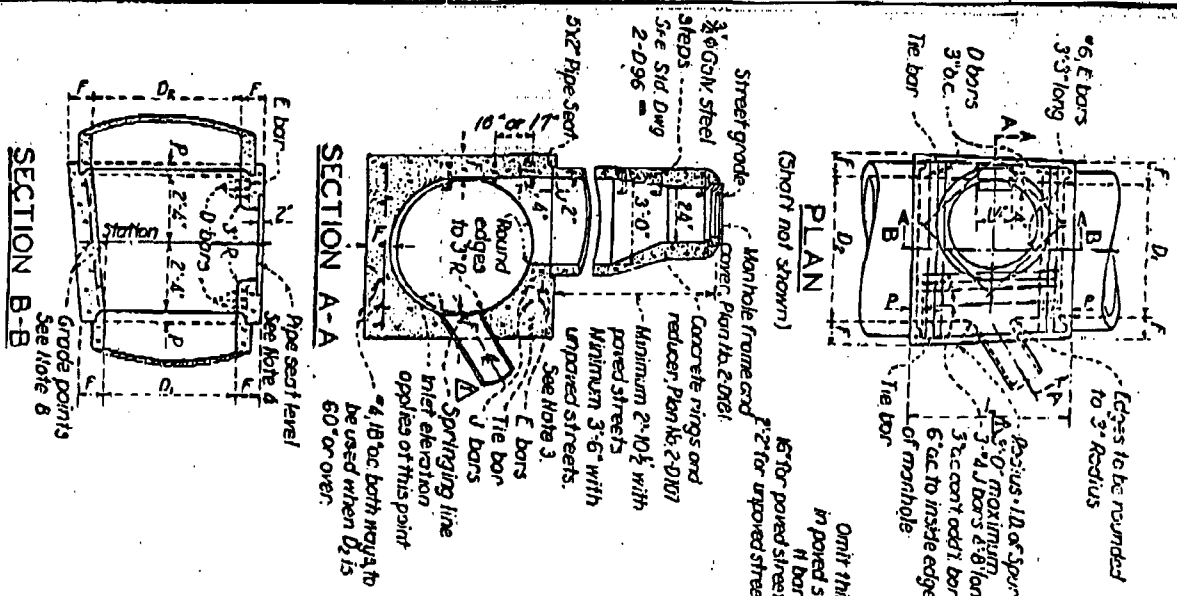 #6, E bars
3'-3" long
D bars
3" o.c.
Tie bar
A
A
F
D2
F
B
B
A
F
D1
F
P
P
A
Edges to be rounded
to 3" Radius
Radius = I.D. of Spur
2'-0" maximum
3-#4 J bars 2'-8" lon
3" o.c. cont. add'l. bar
6" o.c. to inside edge
of manhole
Tie bar
PLAN
(Shaft not shown)
Omit thi
in paved s
H bar
16" for paved street
2'-2" for unpaved stree
Street grade
3/4" ϕ Galv. steel
steps
See Std. Dwg
2-D96
5"x2" Pipe Seat
18" or 17"
2"
4"
24"
3'-0"
Round
edges
to 3" R
Manhole frame and
cover, Plan No. 2-D181
Concrete rings and
reducer, Plan No. 2-D107
Minimum 2'-10½" with
paved streets
Minimum 3'-6" with
unpaved streets.
See Note 3.
E bars
Tie bar
J bars
Springing line
Inlet elevation
applies at this point
#4, 18" o.c. both ways, to
be used when D2 is
60" or over.
SECTION A-A
E bar
F
D2
F
P
2'-4"
2'-4"
P
2"
3" R
D bars
Station
F
D1
F
Pipe seat level
See Note 4
Grade points
See Note 8
SECTION B-B